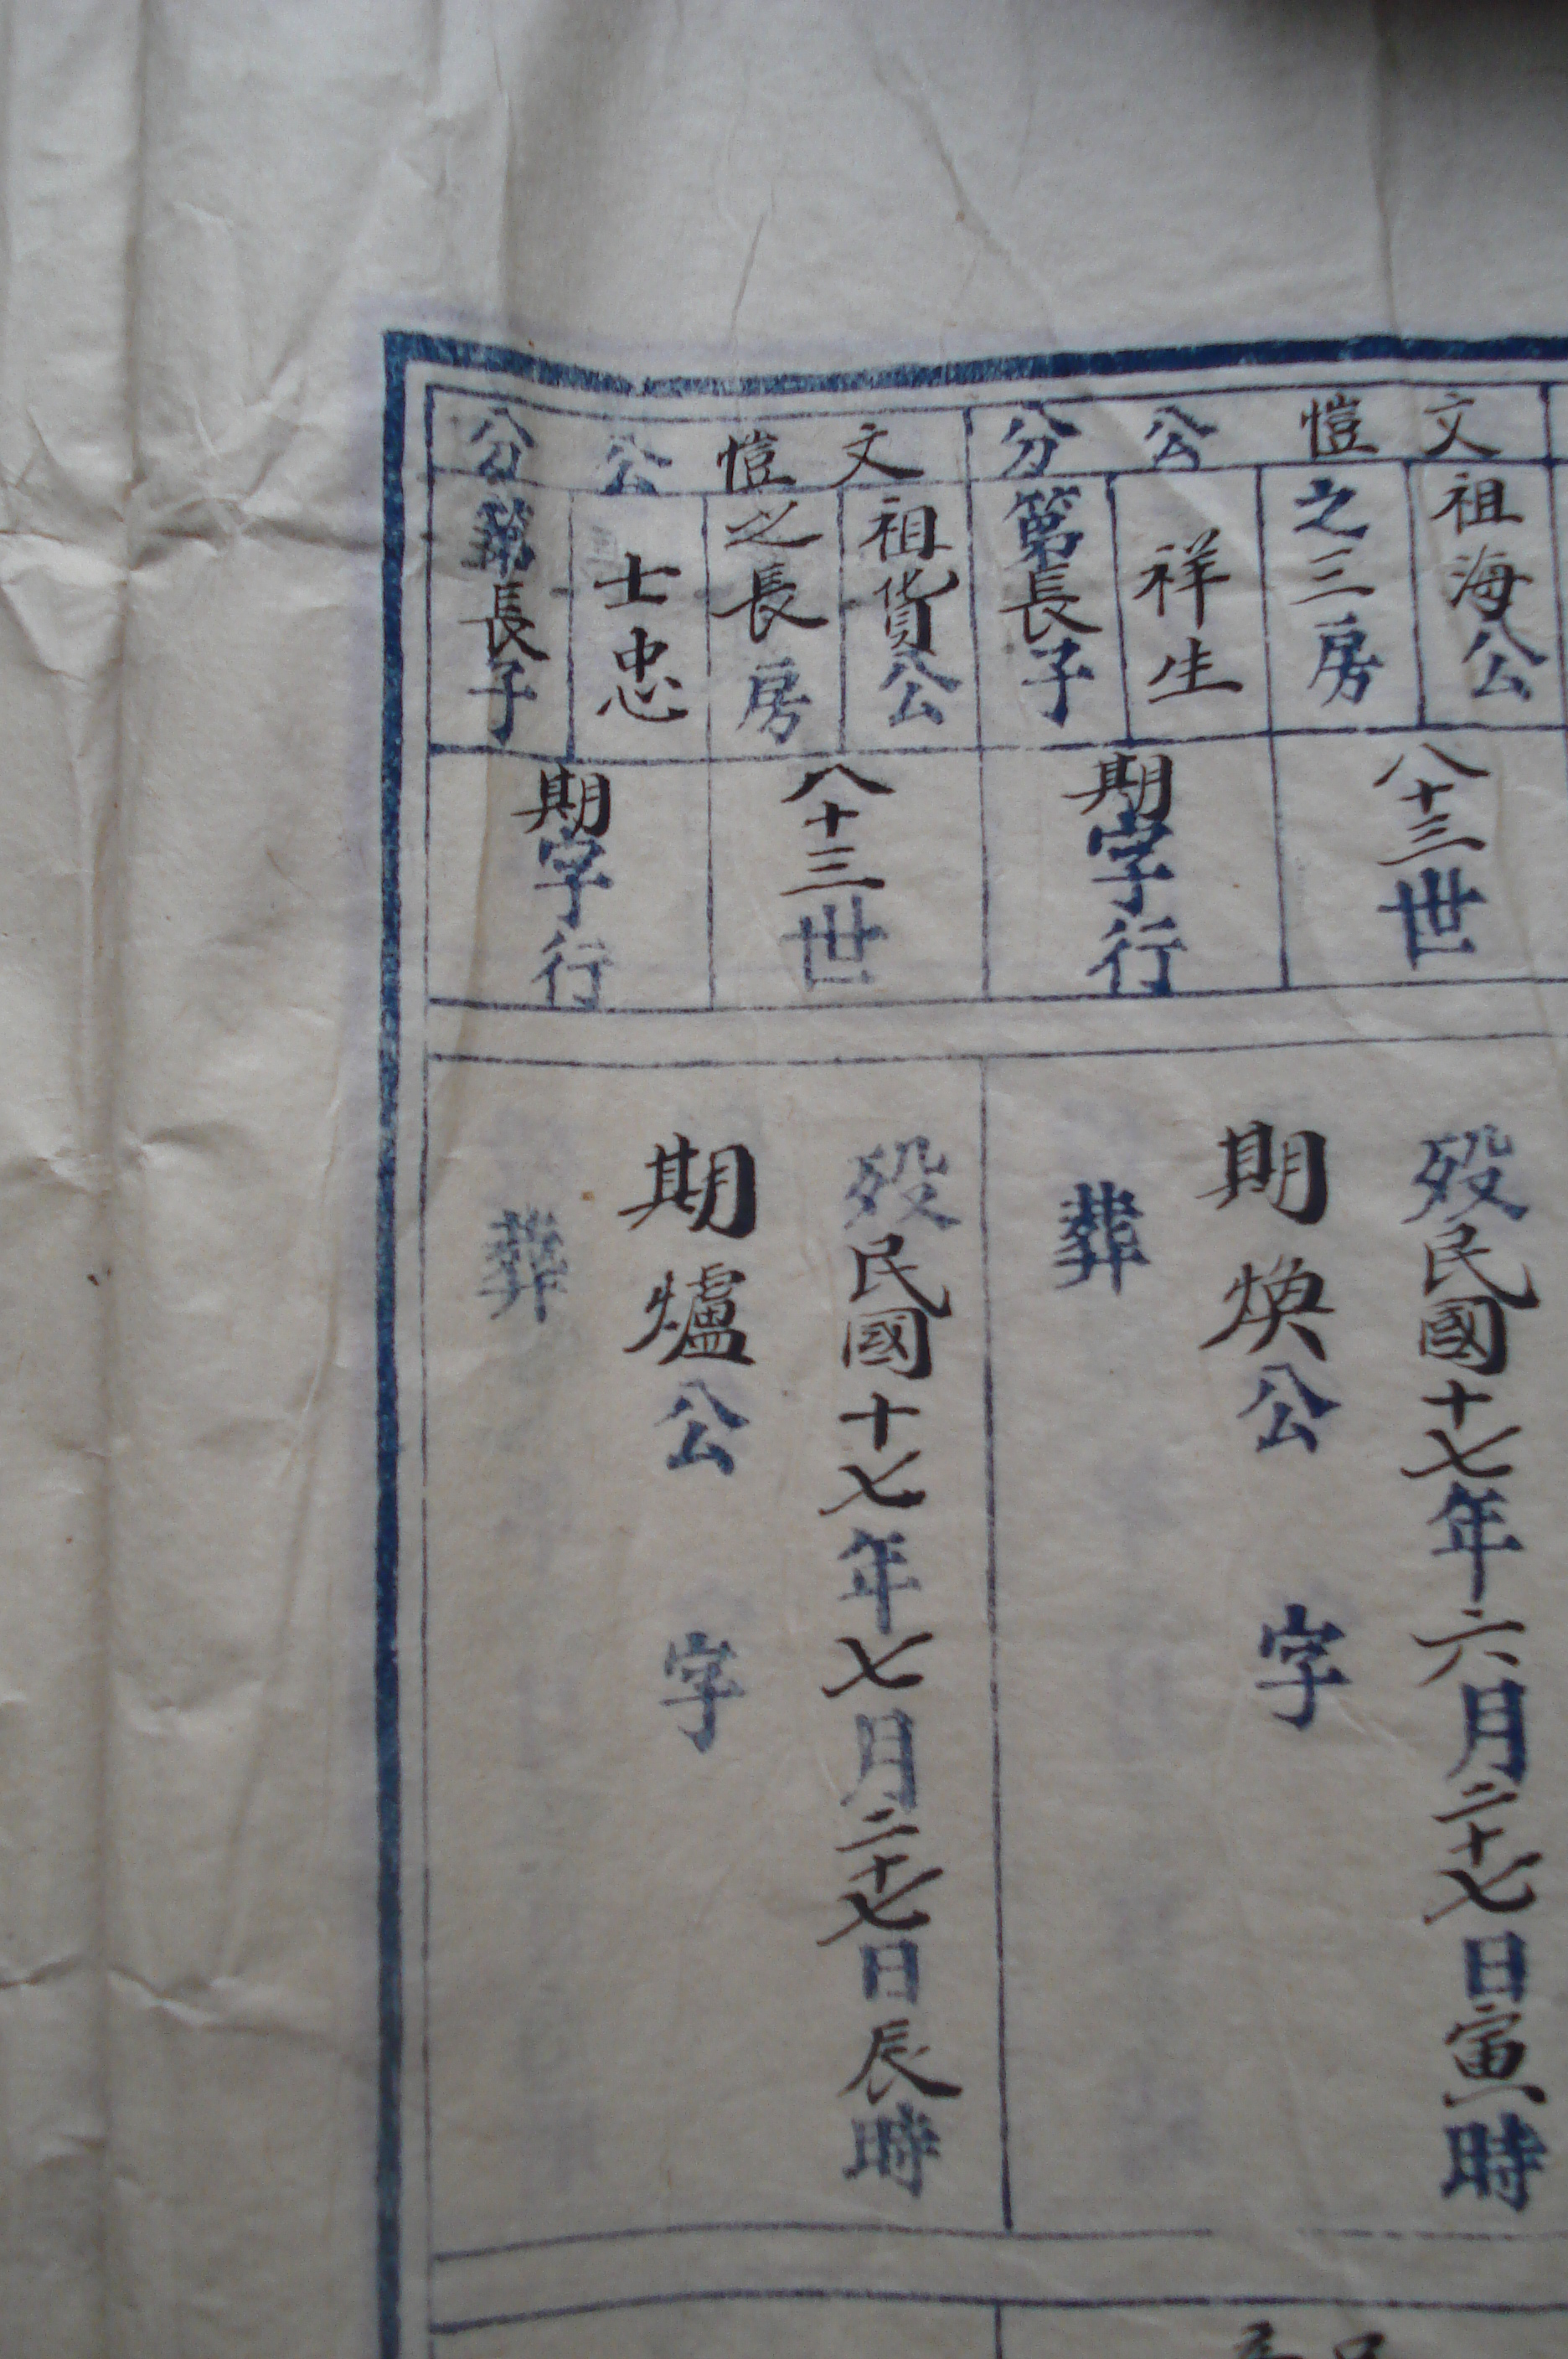 文愷公分
祖海公
之三房
祥生
第長子
八十三世
期字行
殁民國十七年六月二十七日寅時
期煥公 字
葬
文愷公分
祖貨公
之長房
士忠
第長子
八十三世
期字行
殁民國十七年七月二十七日辰時
期爐公 字
葬